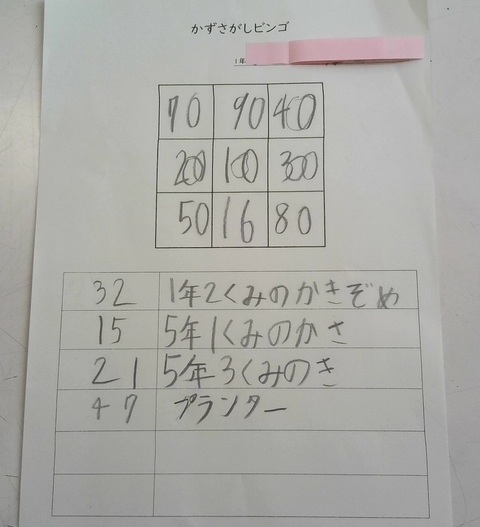 かずさがしビンゴ
1年
70 90 40
200 100 300
50 16 80
32 1年2くみのかきぞめ
15 5年1くみのかさ
21 5年3くみのき
47 プランター